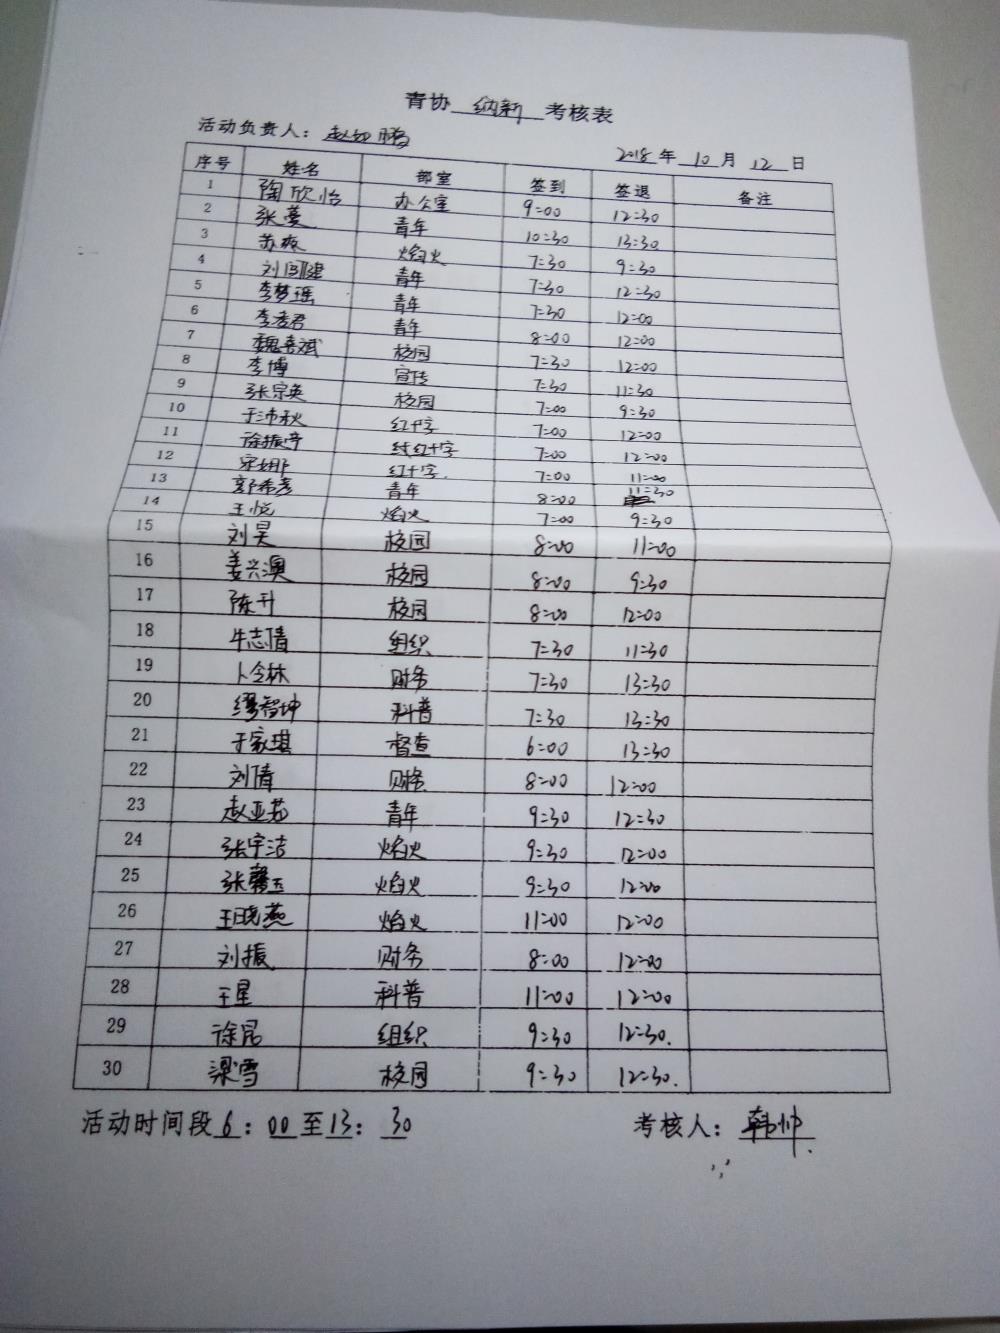 青协 纳新 考核表
活动负责人：赵如鹏
2018年 10月 12日
序号 姓名 部室 签到 签退 备注
1 陶欣怡 办公室 9:00 12:30
2 张蔓 青年 10:30 13:30
3 苏爽 焰火 7:30 9:30
4 刘国健 青年 7:30 12:30
5 李梦瑶 青年 7:30 12:00
6 李孝君 青年 8:00 12:00
7 魏喜斌 校园 7:30 12:00
8 李博 宣传 7:30 11:30
9 张宗英 校园 7:00 9:30
10 于沛秋 红十字 7:00 12:00
11 徐振 红十字 7:00 12:00
12 宋娜 红十字 7:00 11:00
13 郭希彦 青年 8:00 11:30
14 王悦 焰火 7:00 9:30
15 刘昊 校园 8:00 11:00
16 姜兴澳 校园 8:00 9:30
17 陈升 校园 8:00 12:00
18 牛志倩 组织 7:30 11:30
19 卜令林 财务 7:30 13:30
20 缪智坤 科普 7:30 13:30
21 于家琪 督查 6:00 13:30
22 刘倩 财务 8:00 12:00
23 赵亚茹 青年 9:30 12:30
24 张宇洁 焰火 9:30 12:00
25 张馨玉 焰火 9:30 12:00
26 王晓燕 焰火 11:00 12:00
27 刘振 财务 8:00 12:00
28 王星 科普 11:00 12:00
29 徐昆 组织 9:30 12:30.
30 梁雪 校园 9:30 12:30.
活动时间段 6：00至13：30 考核人：韩帅